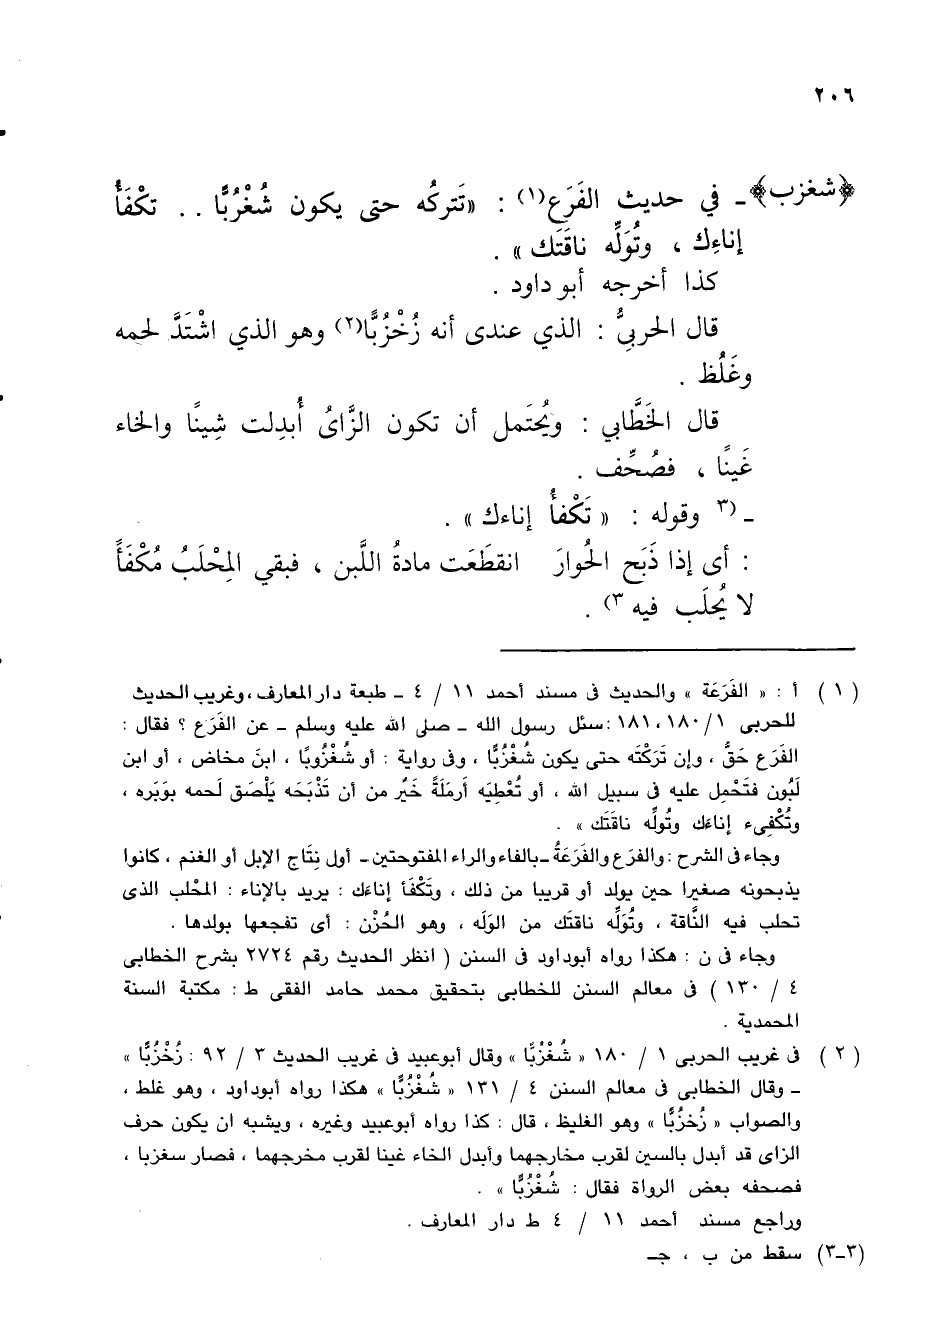 ٢٠٦
﴿شغزب﴾ـ في حديث الفَرَع(١) : «تَتركُه حتى يكون شُغْزُبًّا .. تكْفَأُ
إناءِك ، وتُوَلِّه ناقَتَك » .
كذا أخرجه أبو داود .
قال الحربيُّ : الذي عندى أنه زُخْزُبًّا(٢) وهو الذي اشْتَدَّ لحمه
وغَلُظ .
قال الخَطَّابي : ويُحتَمل أن تكون الزَّايُ أُبدِلت شِينًا والخاء
غَينًا ، فصُحِّف .
ـ (٣ وقوله : « تَكْفأُ إناءك » .
: أى إذا ذَبَح الحُوارَ انقطَعَت مادةُ اللَّبن ، فبقي المِحْلَبُ مُكْفَأً
لا يُحلَب فيه ٣) .
(١) أ : « الفَرَعَة » والحديث فى مسند أحمد ١١ / ٤ ـ طبعة دار المعارف، وغريب الحديث
للحربى ١٨١،١٨٠/١ :سئل رسول الله ـ صلى الله عليه وسلم ـ عن الفَرَع ؟ فقال :
الفَرَع حَقٌّ ، وإن تَرَكْتَه حتى يكون شُغْزُبًّا ، وفى رواية : أو شُغْزُوبًا ، ابنَ مخاض ، أو ابن
لَبُون فتَحْمِل عليه فى سبيل الله ، أو تُعْطِيَه أرمَلَةً خَيْرٌ من أن تَذْبَحَه يَلْصَق لحمه بوَبَره ،
وتُكْفِىء إناءَك وتُولِّه ناقَتَك » .
وجاء فى الشرح : والفرَع والفَرَعَةُ ـ بالفاء والراء المفتوحتين ـ أول نِتَاج الإبل أو الغنم ، كانوا
يذبحونه صغيرا حين يولد أو قريبا من ذلك ، وتَكْفَأ إناءَك : يريد بالإناء : المحْلب الذى
تحلب فيه النَّاقة ، وتُوَلِّه ناقتَك من الوَلَه ، وهو الحُزْن : أى تفجعها بولدها .
وجاء فى ن : هكذا رواه أبوداود فى السنن ( انظر الحديث رقم ٢٧٢٤ بشرح الخطابى
٤ / ١٣٠ ) فى معالم السنن للخطابى بتحقيق محمد حامد الفقى ط : مكتبة السنة
المحمدية .
(٢) فى غريب الحربى ١ / ١٨٠ « شُغْزُبًّا » وقال أبوعبيد فى غريب الحديث ٣ / ٩٢ : زُخْزُبًّا »
ـ وقال الخطابى فى معالم السنن ٤ / ١٣١ « شُغْزُبًّا » هكذا رواه أبوداود ، وهو غلط ،
والصواب « زُخزُبًّا » وهو الغليظ ، قال : كذا رواه أبوعبيد وغيره ، ويشبه ان يكون حرف
الزاى قد أبدل بالسين لقرب مخارجهما وأبدل الخاء غينا لقرب مخرجهما ، فصار سغزبا ،
فصحفه بعض الرواة فقال : شُغْزُبًّا » .
وراجع مسند أحمد ١١ / ٤ ط دار المعارف .
(٣-٣) سقط من ب ، جـ